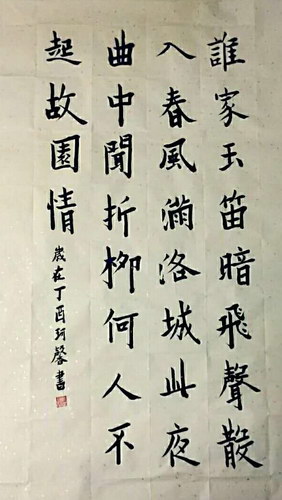 誰家玉笛暗飛聲散
入春風滿洛城此夜
曲中聞折柳何人不
起故園情
歲在丁酉珂馨書